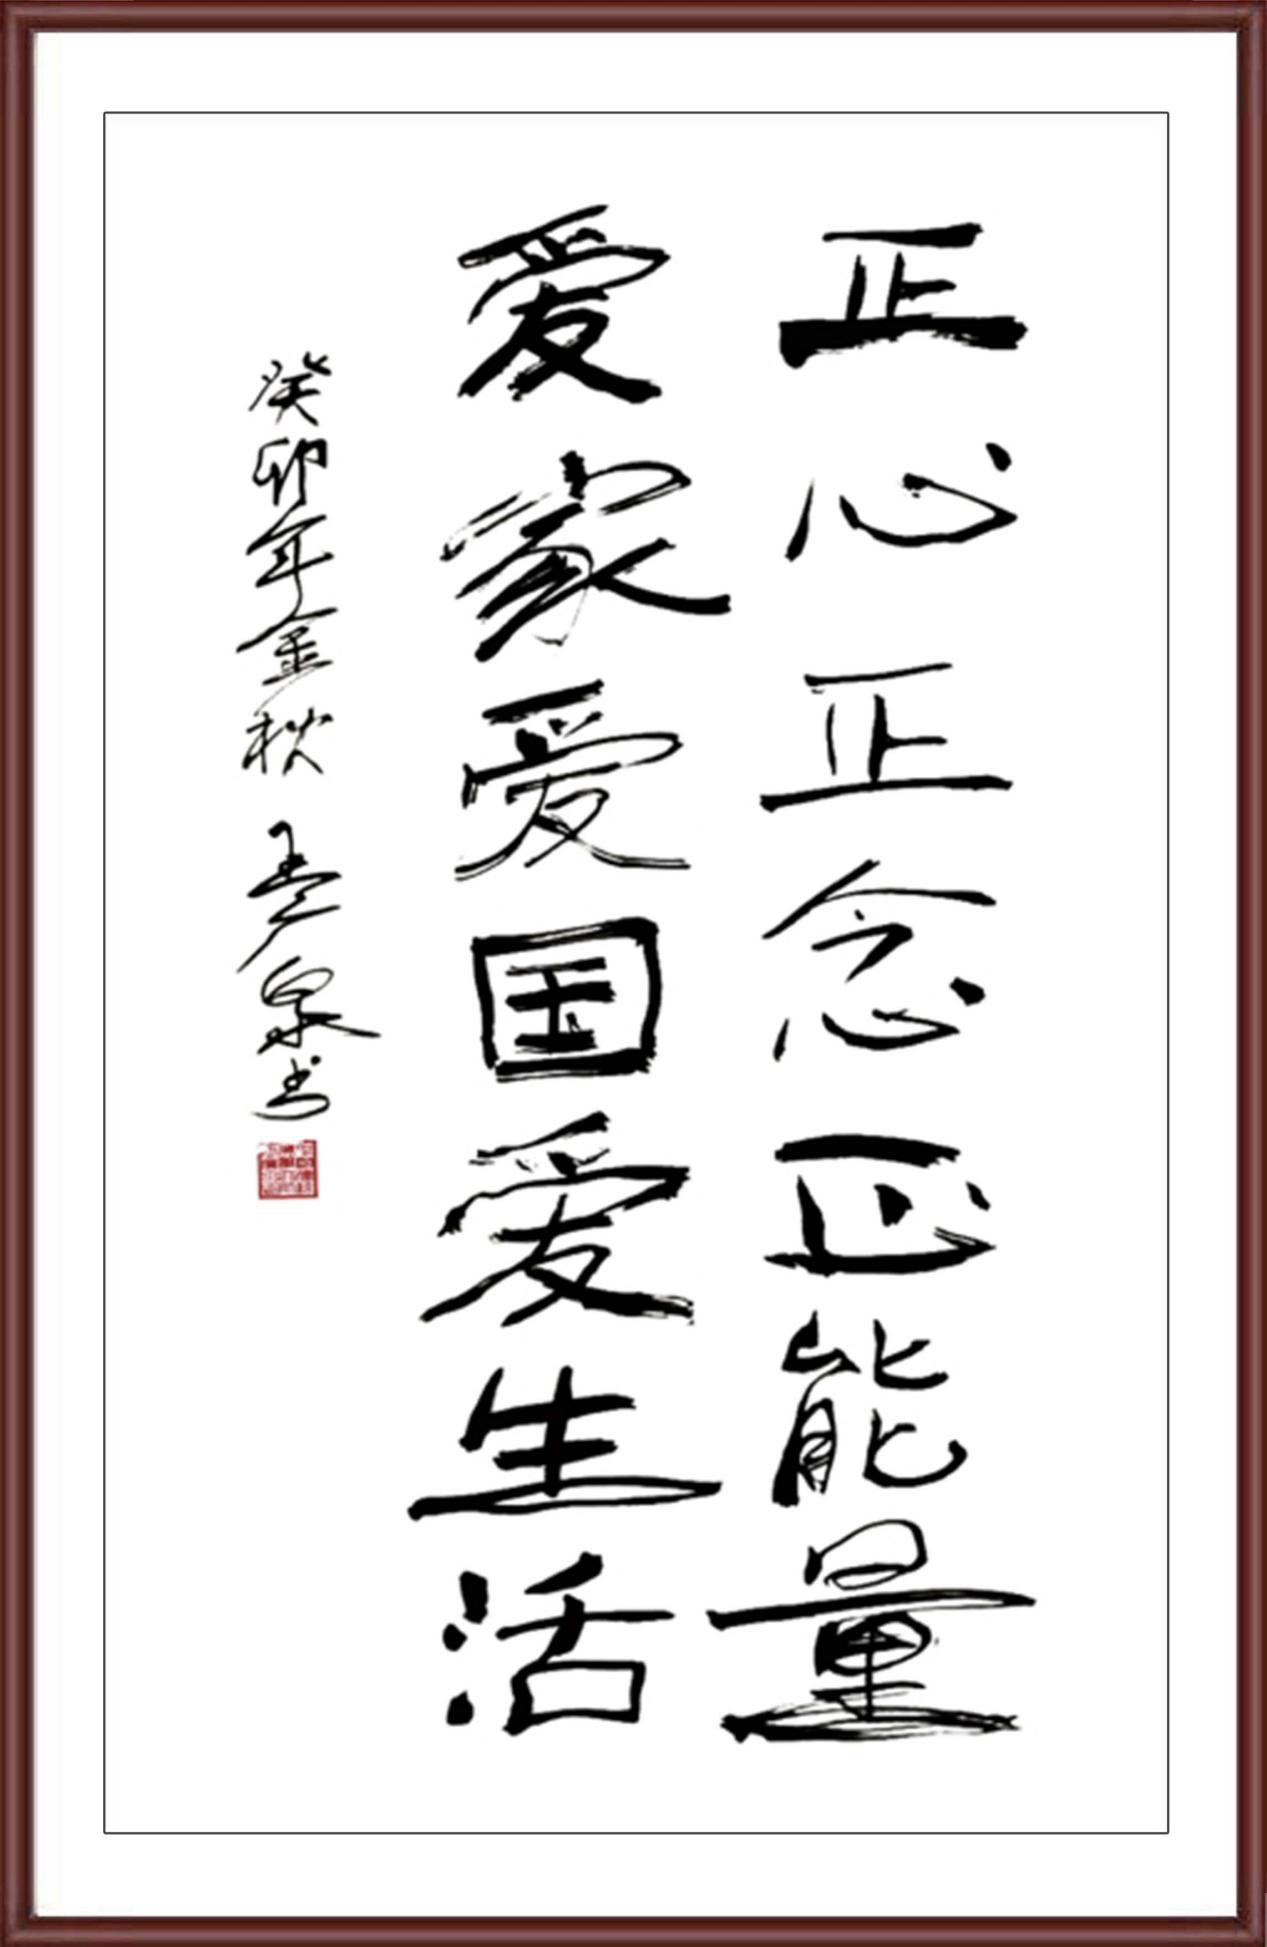 正心正念正能量
爱家爱国爱生活
癸卯年金秋 泉书